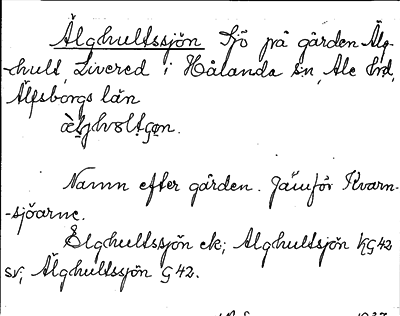 Älghultssjön Sjö på gården Älg-
hult, Livered i Hålanda sn, Ale hrd,
Älfsborgs län

Namn efter gården. Jämför Kvarn-
-sjöarne.
Elghultssjön ek; Alghultsjön KG42
sv; Älghultssjön G42.